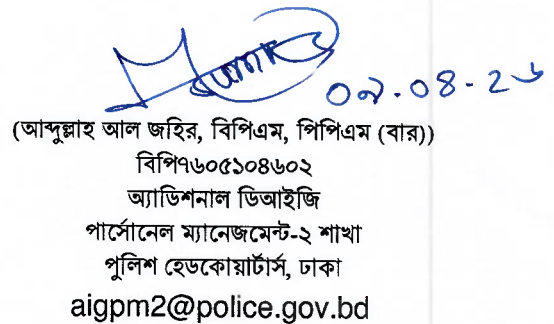 ০৯-০৪-২৬
(আব্দুল্লাহ আল জহির, বিপিএম, পিপিএম (বার))
বিপি৭৬০৫১০৪৬০২
অ্যাডিশনাল ডিআইজি
পার্সোনেল ম্যানেজমেন্ট-২ শাখা
পুলিশ হেডকোয়ার্টার্স, ঢাকা
aigpm2@police.gov.bd